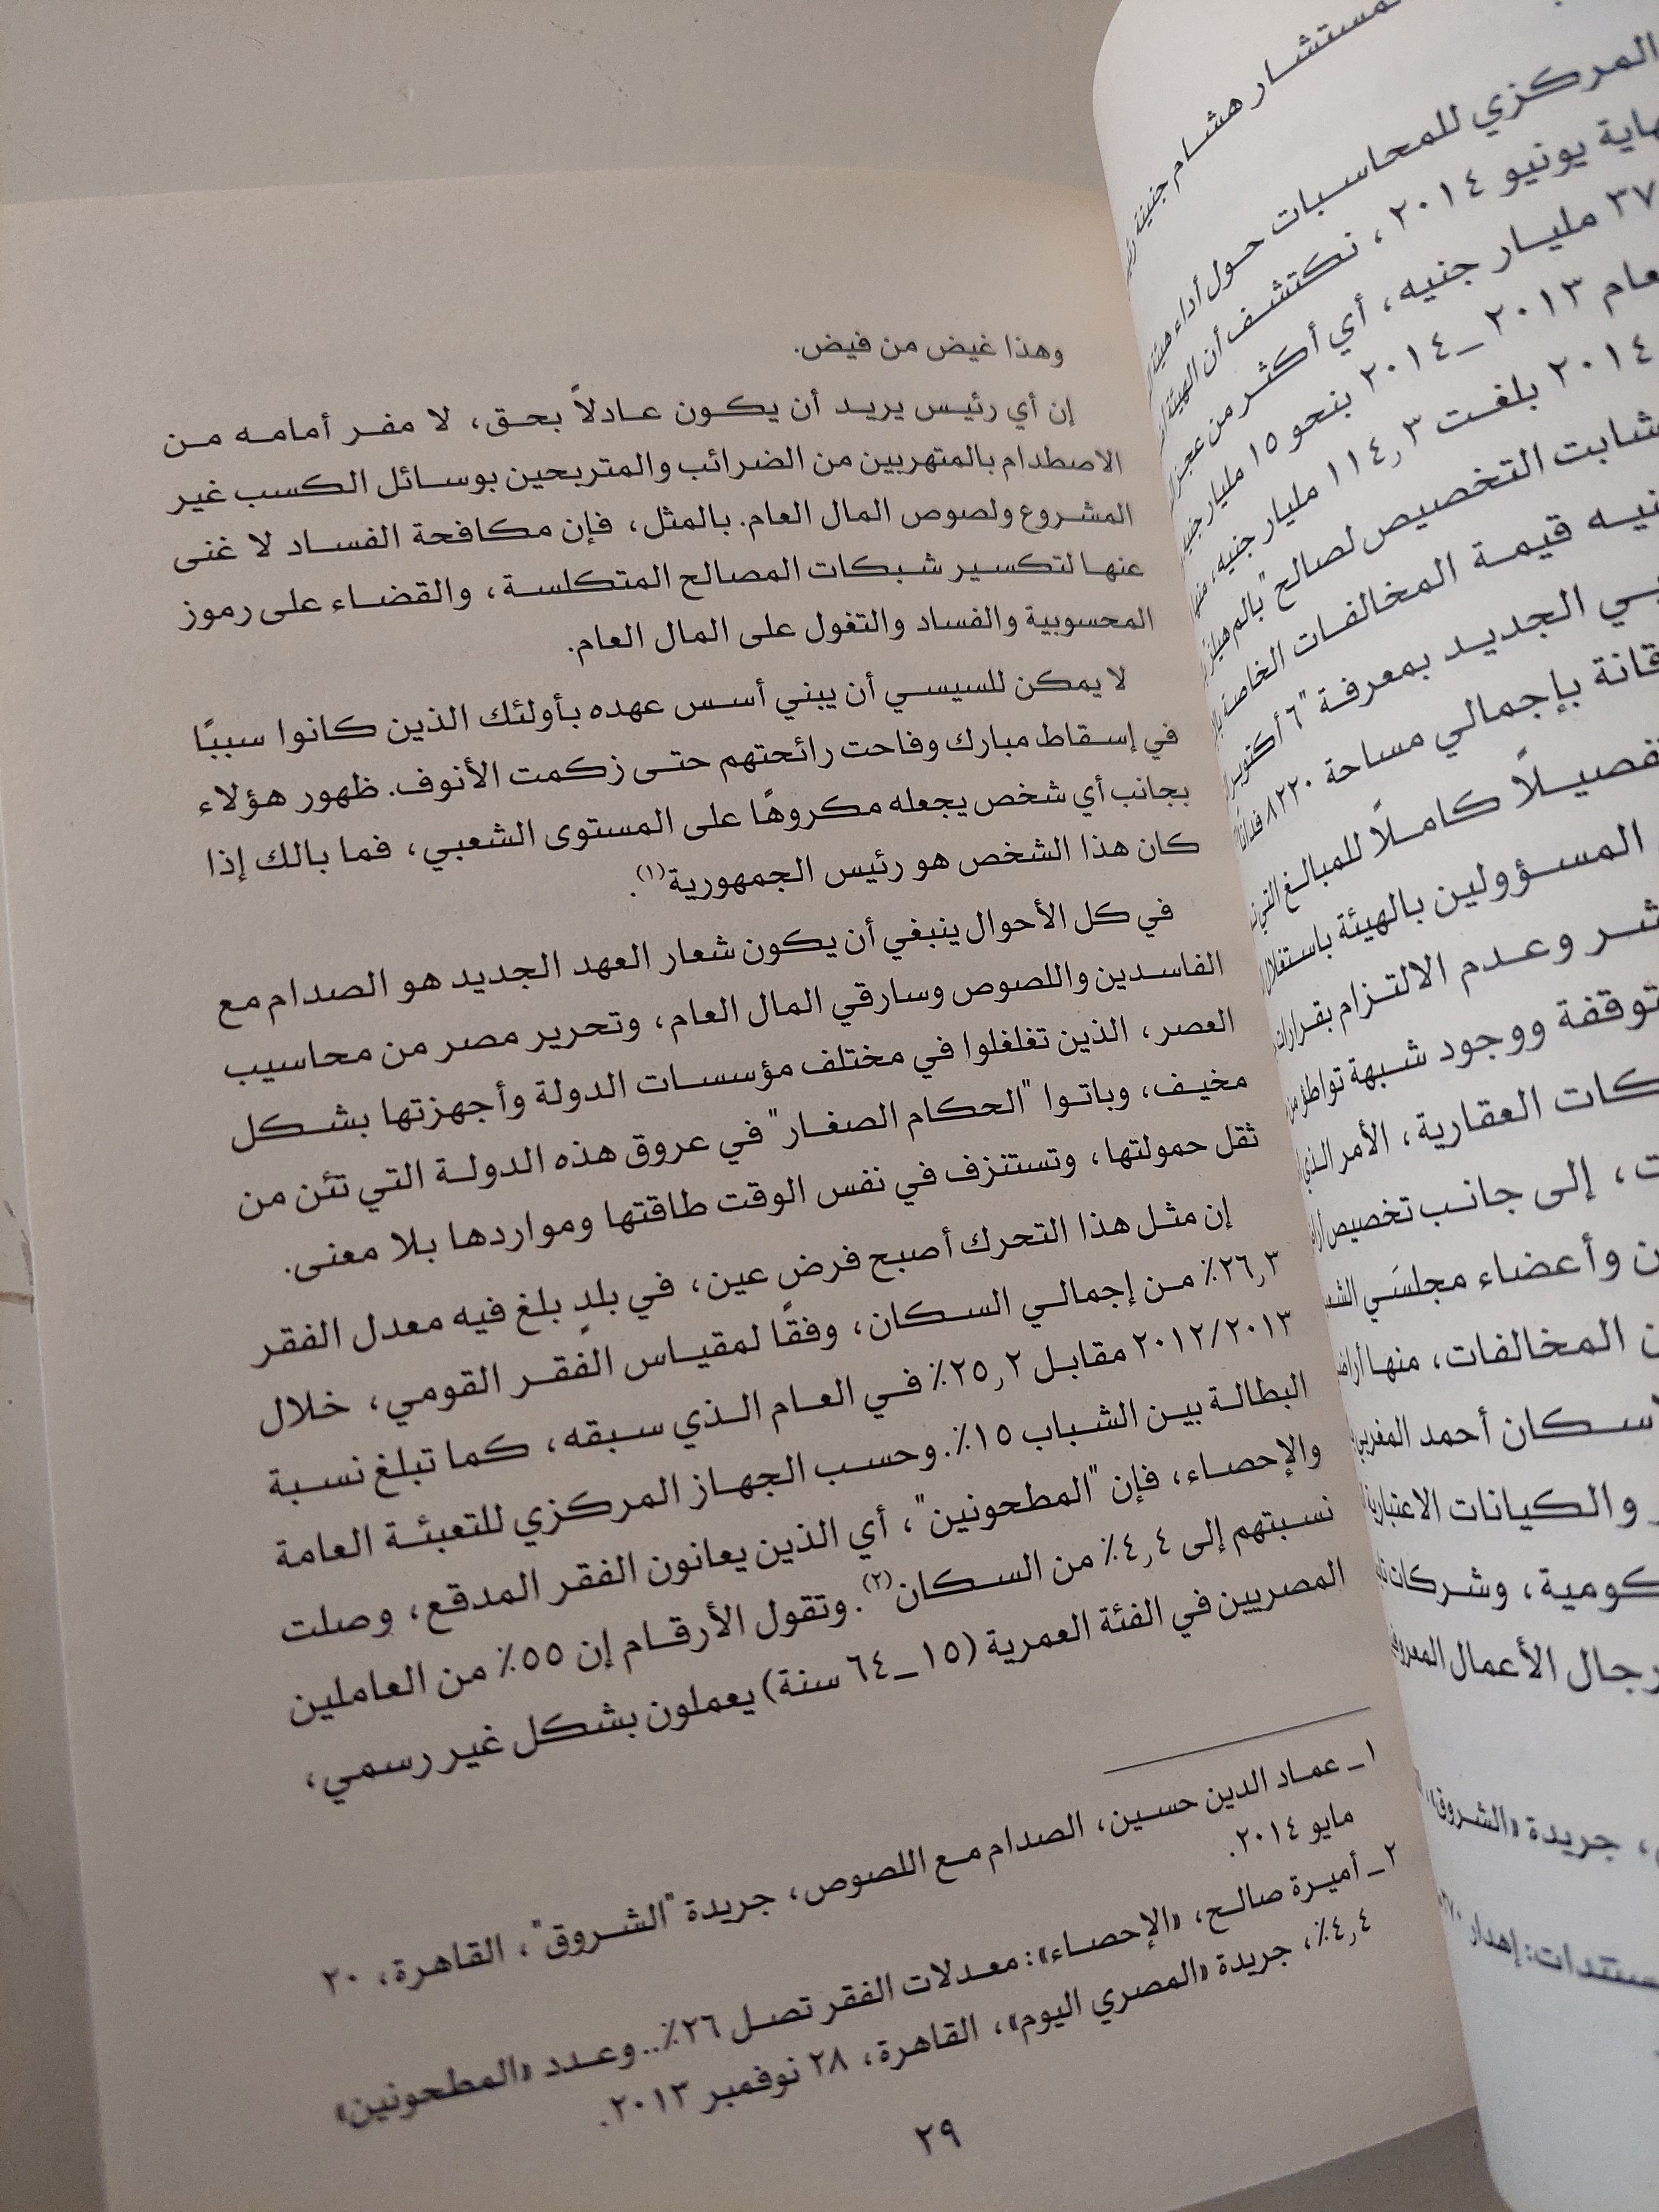 المستشار هشام جنينة
المركزي للمحاسبات حول أداء هيئة
نهاية يونيو ٢٠١٤، نكتشف أن الهيئة
٣٧ مليار جنيه، أي أكثر من عجز
عام ٢٠١٣_٢٠١٤ بنحو ١٥ مليار جنيه
٢٠١٤ بلغت ١١٤٫٣ مليار جنيه، منها
شابت التخصيص لصالح "بالم هيلز
قيمة المخالفات الخاصة
الجديد بمعرفة "٦ أكتوبر
بإجمالي مساحة ٨٢٢٠ فدانًا
كاملًا للمبالغ التي
المسؤولين بالهيئة باستغلال
وعدم الالتزام بقرارات
ووجود شبهة تواطؤ من
العقارية، الأمر الذي
، إلى جانب تخصيص
وأعضاء مجلسَي
المخالفات، منها
أحمد المغربي
والكيانات الاعتبارية
، وشركات
رجال الأعمال
، جريدة «الشروق»
إهدار
وهذا غيض من فيض.
إن أي رئيس يريد أن يكون عادلاً بحق، لا مفر أمامه من
الاصطدام بالمتهربين من الضرائب والمتربحين بوسائل الكسب غير
المشروع ولصوص المال العام. بالمثل، فإن مكافحة الفساد لا غنى
عنها لتكسير شبكات المصالح المتكلسة، والقضاء على رموز
المحسوبية والفساد والتغول على المال العام.
لا يمكن للسيسي أن يبني أسس عهده بأولئك الذين كانوا سببًا
في إسقاط مبارك وفاحت رائحتهم حتى زكمت الأنوف. ظهور هؤلاء
بجانب أي شخص يجعله مكروهًا على المستوى الشعبي، فما بالك إذا
كان هذا الشخص هو رئيس الجمهورية(١).
في كل الأحوال ينبغي أن يكون شعار العهد الجديد هو الصدام مع
الفاسدين واللصوص وسارقي المال العام، وتحرير مصر من محاسيب
العصر، الذين تغلغلوا في مختلف مؤسسات الدولة وأجهزتها بشكل
مخيف، وباتوا "الحكام الصغار" في عروق هذه الدولة التي تئن من
ثقل حمولتها، وتستنزف في نفس الوقت طاقتها ومواردها بلا معنى.
إن مثل هذا التحرك أصبح فرض عين، في بلدٍ بلغ فيه معدل الفقر
٢٦٫٣٪ من إجمالي السكان، وفقًا لمقياس الفقر القومي، خلال
٢٠١٢/٢٠١٣ مقابل ٢٥٫٢٪ في العام الذي سبقه، كما تبلغ نسبة
البطالة بين الشباب ١٥٪. وحسب الجهاز المركزي للتعبئة العامة
والإحصاء، فإن "المطحونين"، أي الذين يعانون الفقر المدقع، وصلت
نسبتهم إلى ٤٫٤٪ من السكان(٢). وتقول الأرقام إن ٥٥٪ من العاملين
المصريين في الفئة العمرية (١٥_٦٤ سنة) يعملون بشكل غير رسمي،
١_ عماد الدين حسين، الصدام مع اللصوص، جريدة "الشروق"، القاهرة، ٢٠
مايو ٢٠١٤.
٢_ أميرة صالح، «الإحصاء»: معدلات الفقر تصل ٢٦٪.. وعدد «المطحونين»
٤٫٤٪، جريدة «المصري اليوم»، القاهرة، ٢٨ نوفمبر ٢٠١٣.
٢٩